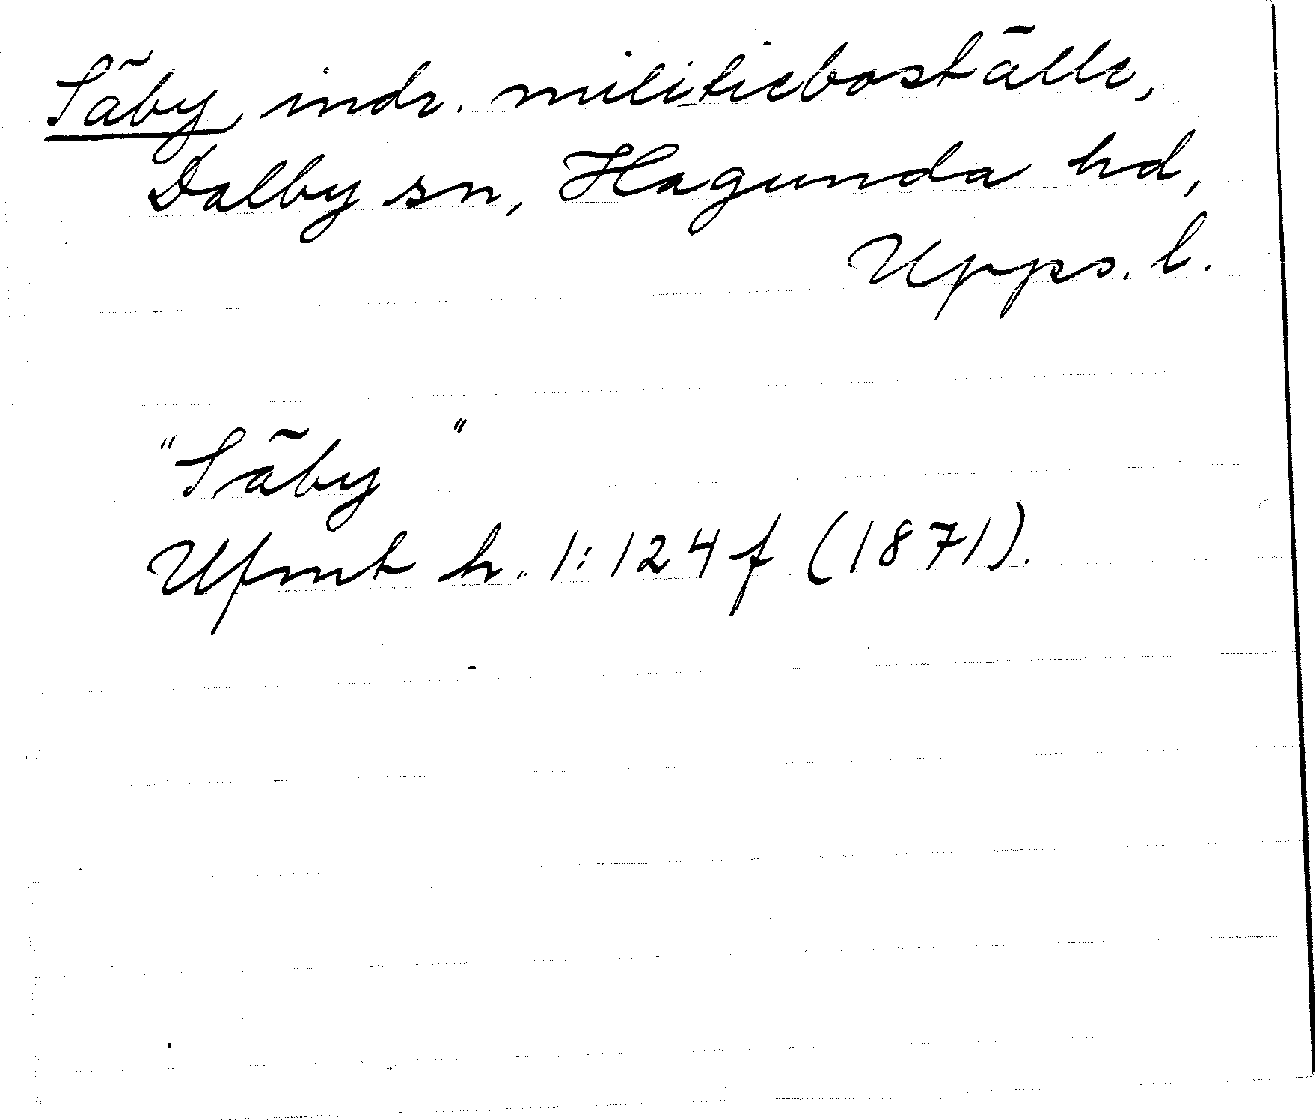 Säby, indr. militieboställe,
Dalby sn, Hagunda hd,
Upps. l.
"Säby"
Ufmt h. 1: 124 f (1871).